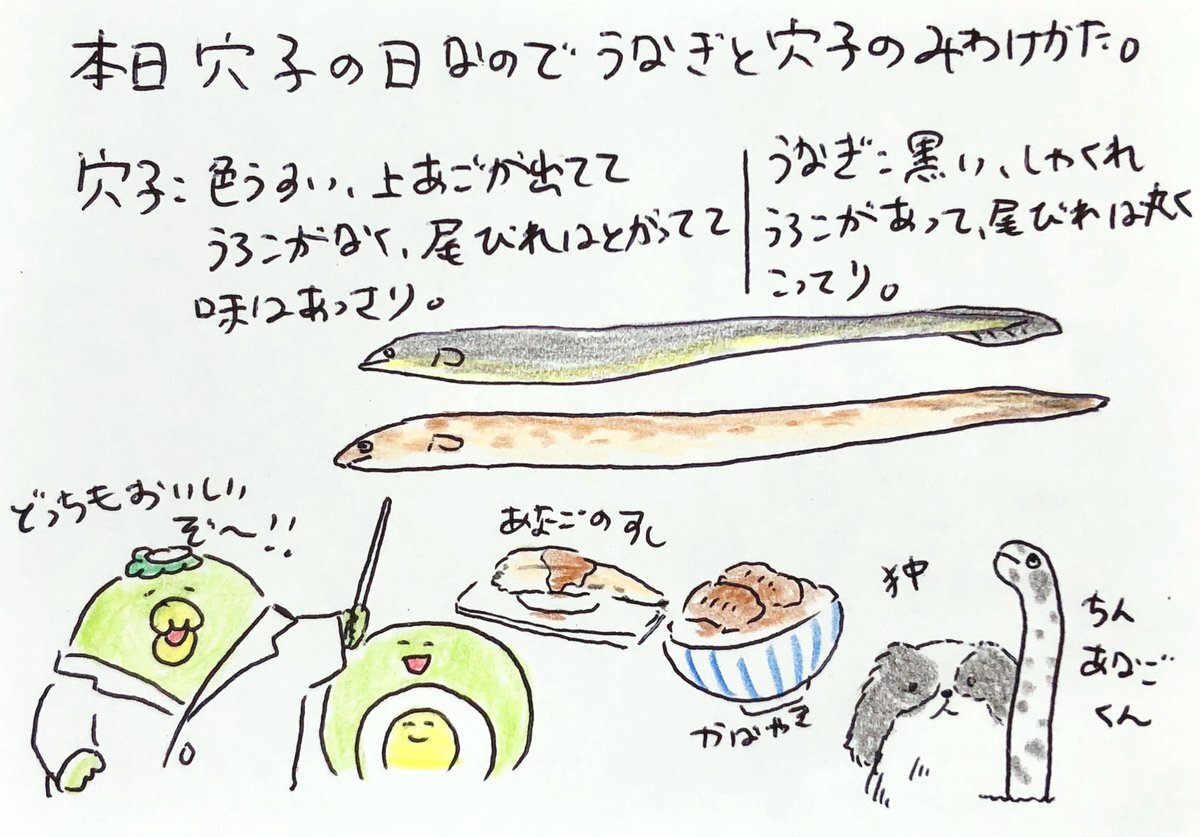 本日穴子の日なのでうなぎと穴子のみわけかた。
穴子:色うすい、上あごが出てて
うろこがなく、尾びれはとがってて
味はあっさり。
うなぎ:黒い、しゃくれ
うろこがあって、尾びれは丸く
こってり。
どっちもおいしい
ぞ〜!!
あなごのすし
かばやき
狆
ちん
あなご
くん